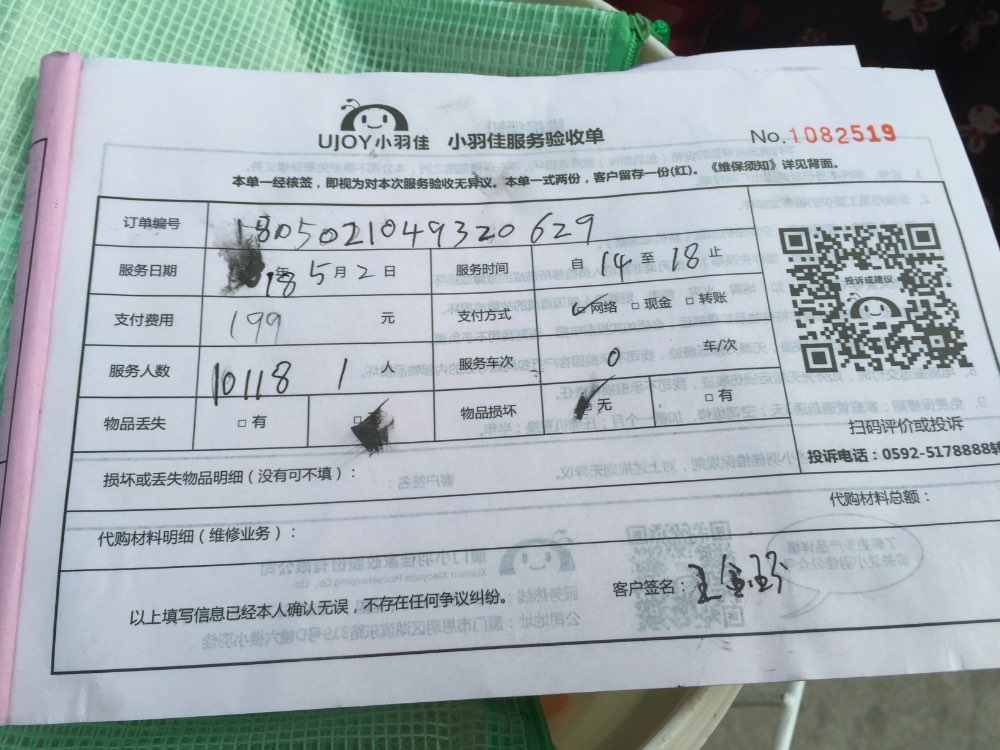 UJOY小羽佳 小羽佳服务验收单 No.1082519
本单一经核签，即视为对本次服务验收无异议。本单一式两份，客户留存一份(红)。《维保须知》详见背面。
订单编号 1805021049320629
服务日期 18年5月2日 服务时间 自14至18止
支付费用 199 元 支付方式 ☑网络 □现金 □转账
服务人数 10118 1 人 服务车次 0 车/次
物品丢失 □有 物品损坏 无 □有
投诉或建议
扫码评价或投诉
投诉电话：0592-5178888转
损坏或丢失物品明细（没有可不填）：
代购材料明细（维修业务）： 代购材料总额：
以上填写信息已经本人确认无误，不存在任何争议纠纷。 客户签名：